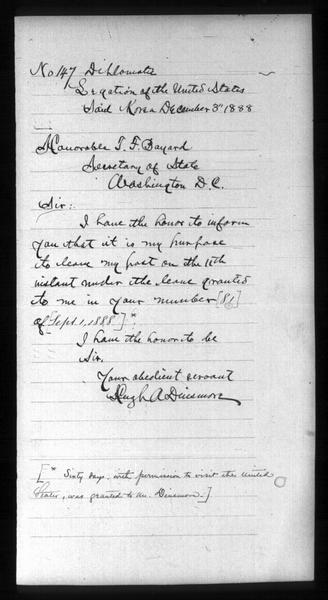 No 147 Diplomatic
Legation of the United States
Seoul Korea December 3rd 1888
Honorable T. F. Bayard
Secretary of State
Washington D.C.
Sir:
I have the honor to inform
you that it is my purpose
to leave my post on the 10th
instant under the leave granted
to me in your number [86]
of [Sept. 1, 1888.]*
I have the honor to be
Sir,
Your obedient servant
Hugh A Dinsmore
[* Sixty days, with permission to visit the United
States, was granted to Mr. Dinsmore.]